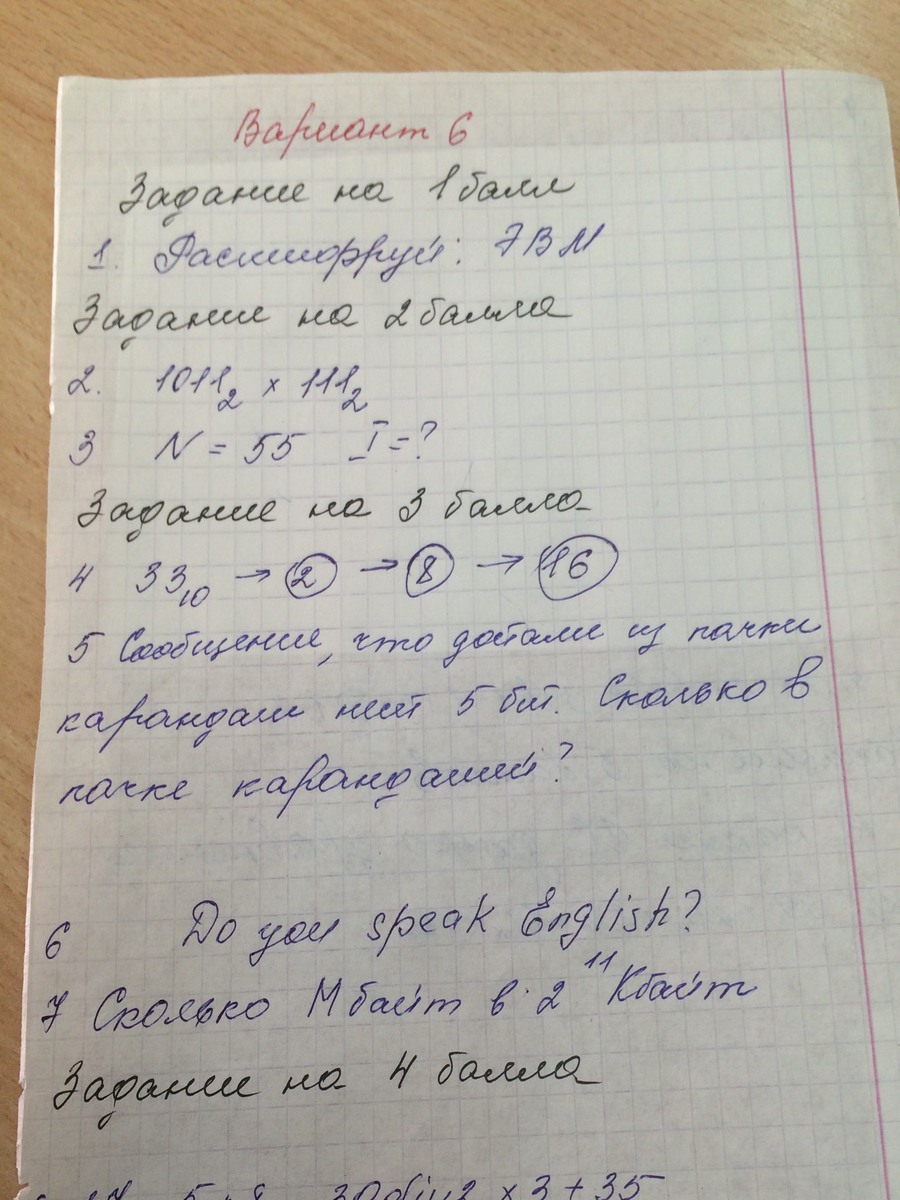 Вариант 6
Задание на 1 балл
1. Расшифруй: ЭВМ
Задание на 2 балла
2. 1011₂ × 111₂
3 N = 55 I = ?
Задание на 3 балла
4 33₁₀ → 2 → 8 → 16
5 Сообщение, что достали из пачки
карандаш несёт 5 бит. Сколько в
пачке карандашей?
6 Do you speak English?
7 Сколько Мбайт в 2¹¹ Кбайт
Задание на 4 балла
× 3 + 35